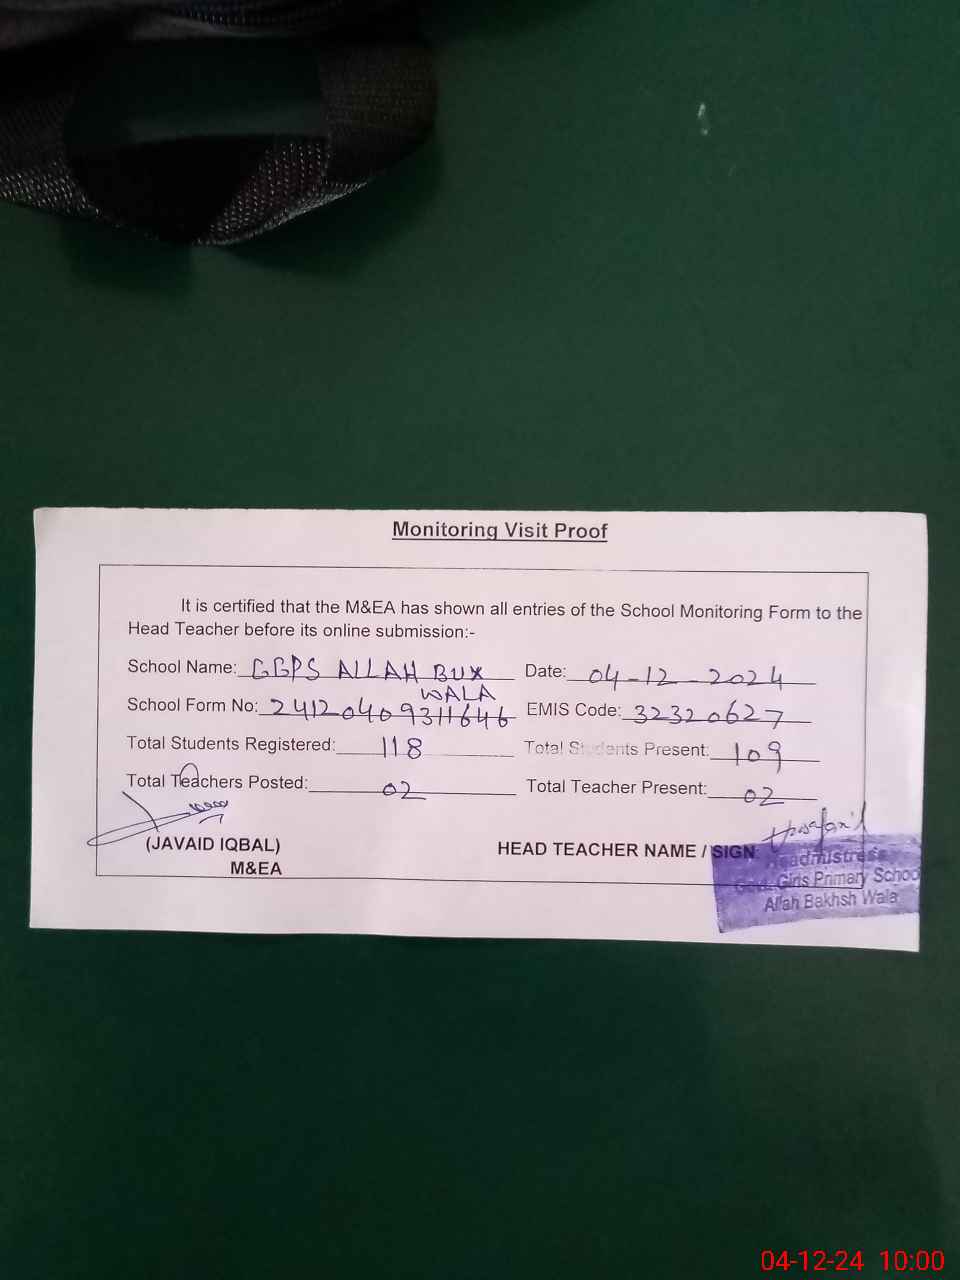 Monitoring Visit Proof
It is certified that the M&EA has shown all entries of the School Monitoring Form to the
Head Teacher before its online submission:-
School Name: GGPS ALLAH BUX WALA Date: 04-12-2024
School Form No: 24120409311646 EMIS Code: 32320627
Total Students Registered: 118 Total Students Present: 109
Total Teachers Posted: 02 Total Teacher Present: 02
(JAVAID IQBAL)
M&EA
HEAD TEACHER NAME / SIGN
Headmistress
Govt. Girls Primary School
Allah Bakhsh Wala
04-12-24 10:00